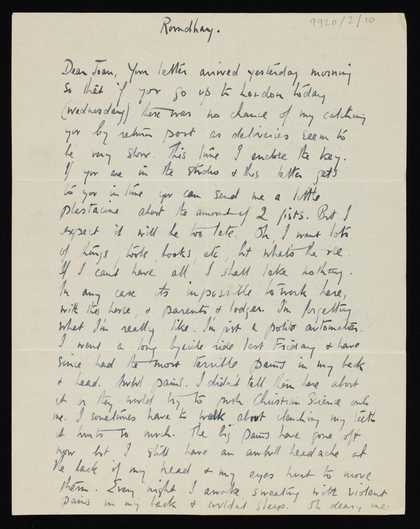 9920/2/10
Roundhay.
Dear Joan, Your letter arrived yesterday morning
so that if you go up to London today
(wednesday) there was no chance of my catching
you by return post as deliveries seem to
be very slow. This time I enclose the key.
If you are in the studio & this letter gets
to you in time you can send me a little
plasticine about the amount of 2 fists. But I
expect it will be too late. Oh I want lots
of things, tools books etc, but whats the use.
If I cant have all I shall take nothing.
In any case its impossible to work here,
with the horse, & parents & lodger. I'm forgetting
what I'm really like. I'm just a polite automaton.
I went a long bycicle ride last Friday & have
since had the most terrible pains in my back
& head. Awful pains. I didn't tell them here about
it or they would try to push Christian Science onto
me. I sometimes have to walk about clenching my teeth
it hurts so much. The big pains have gone off
now but I still have an awful headache at
the back of my head & my eyes hurt to move
them. Every night I awake sweating with violent
pains in my back & couldnt sleep. Oh deary me